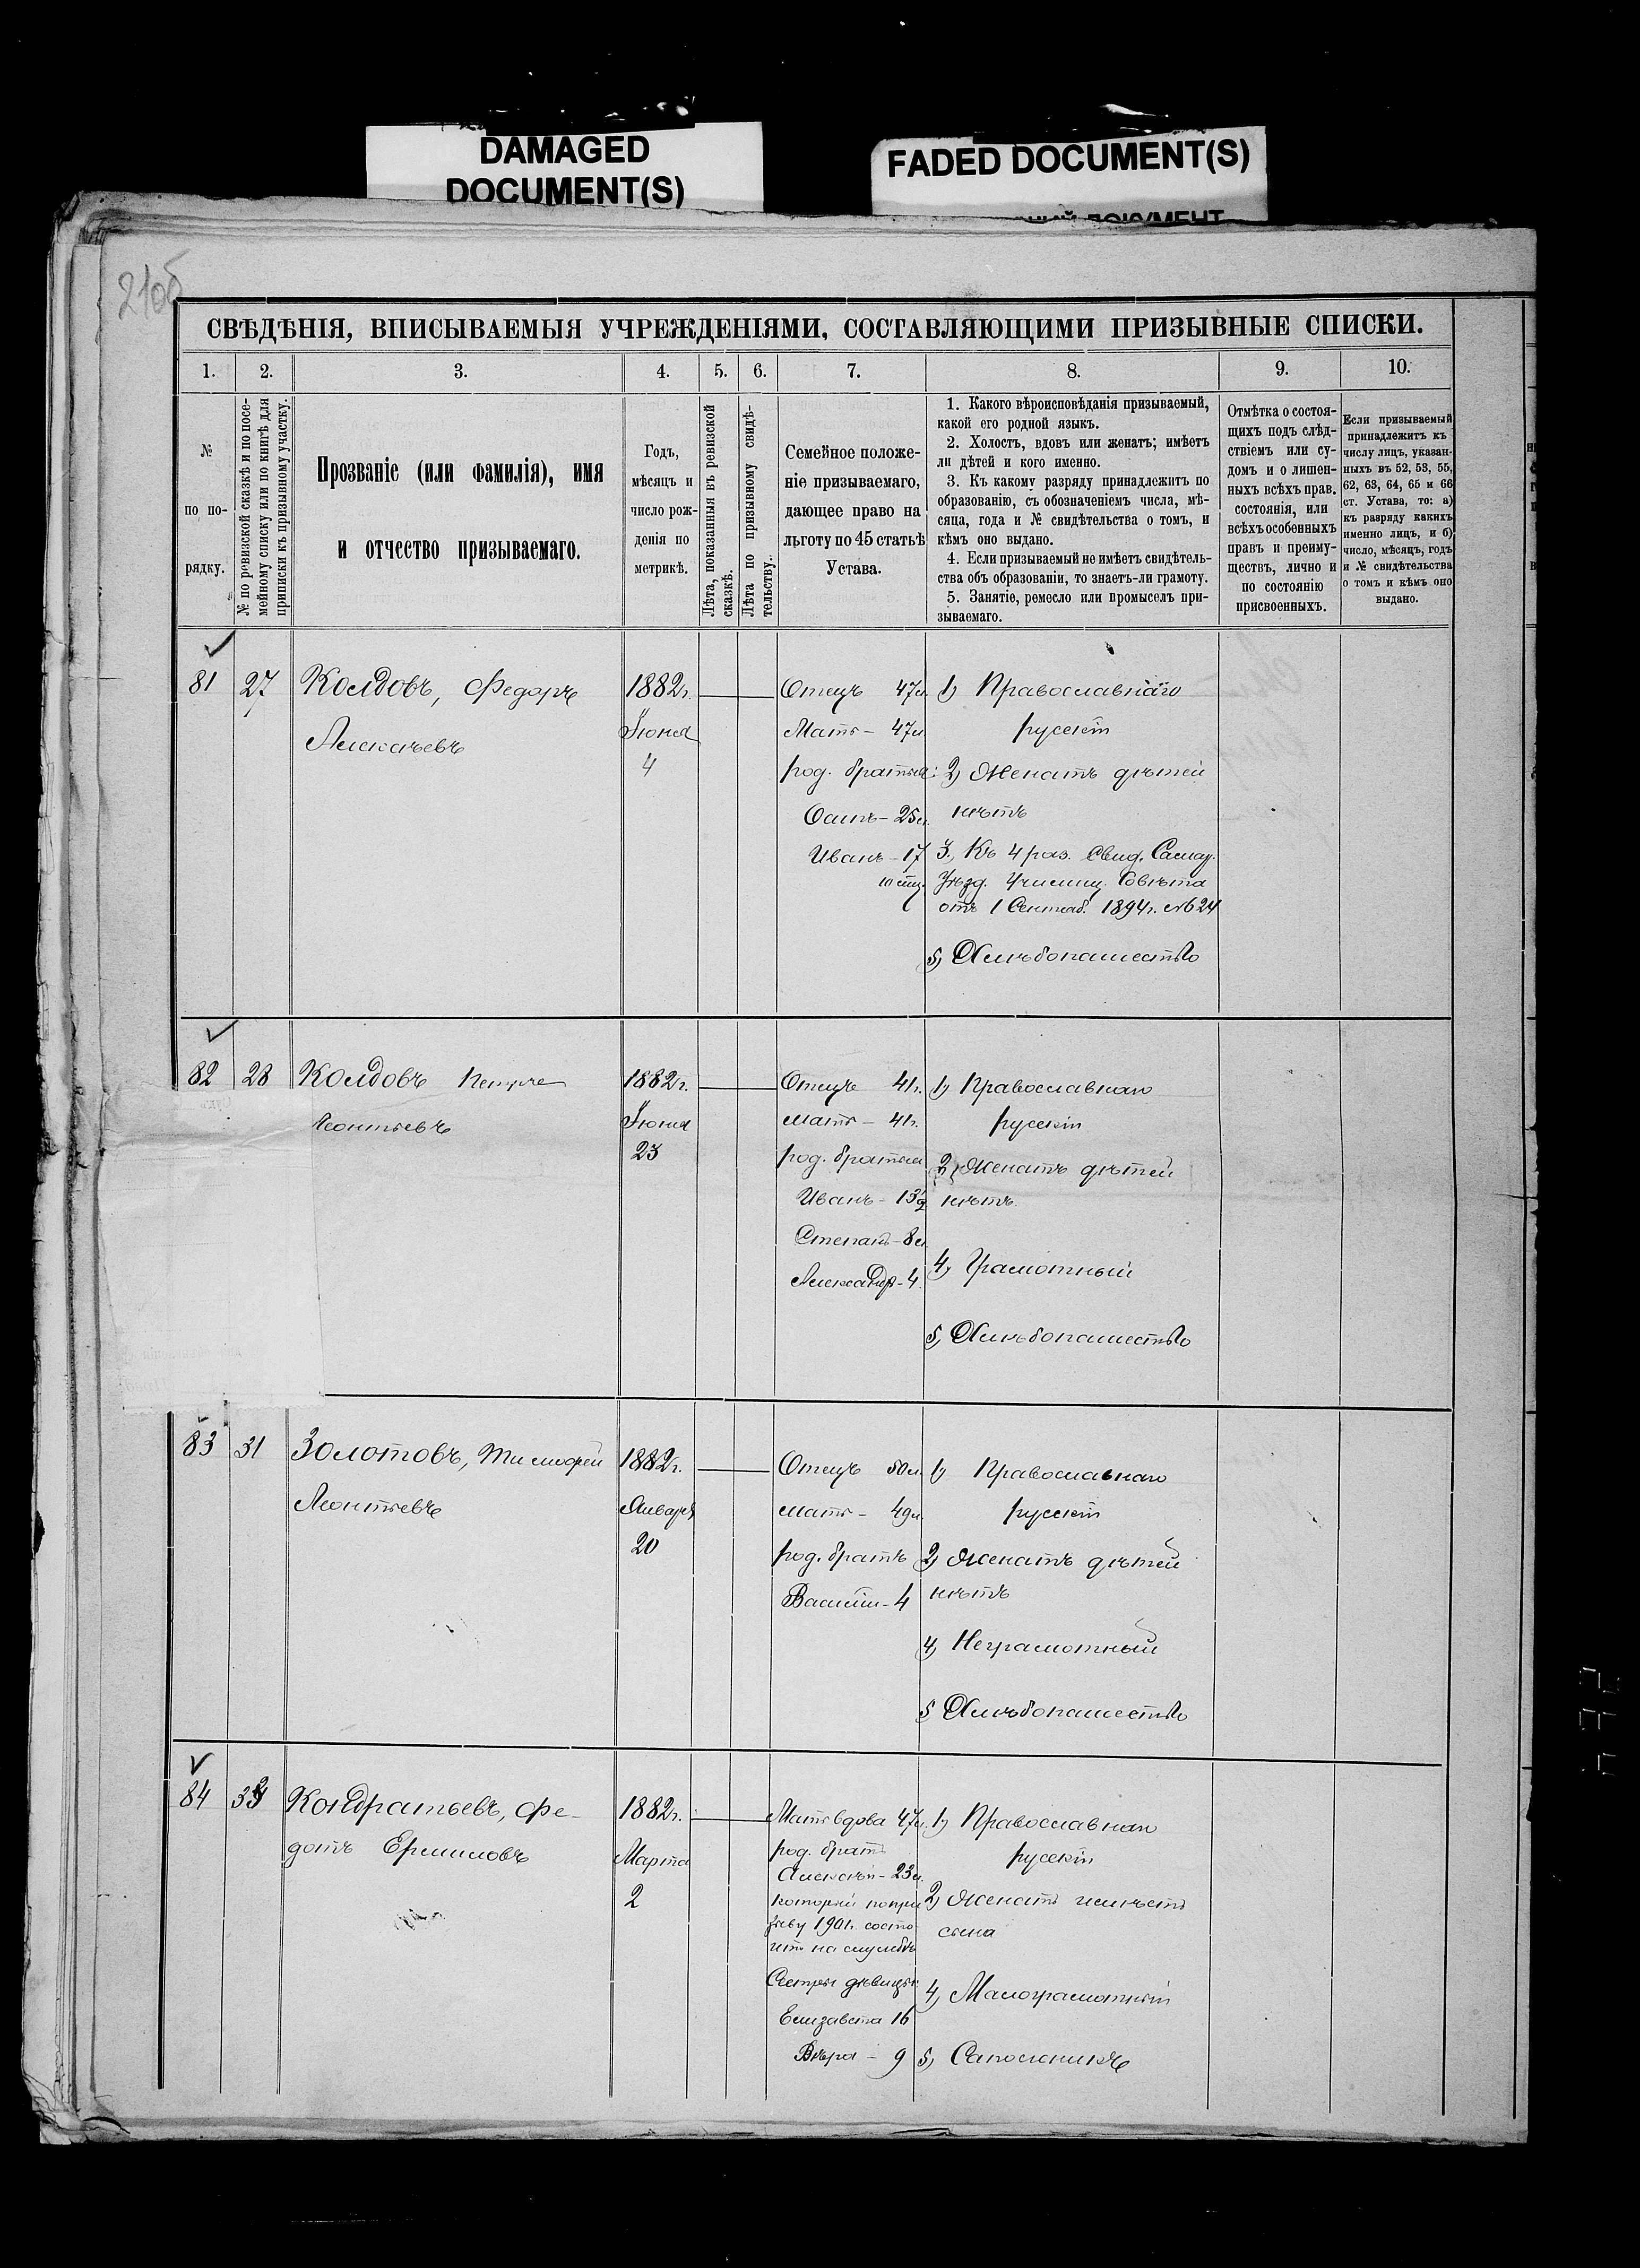 DAMAGED
DOCUMENT(S)
FADED DOCUMENT(S)
ДОКУМЕНТ
210б
СВѢДѢНІЯ, ВПИСЫВАЕМЫЯ УЧРЕЖДЕНІЯМИ, СОСТАВЛЯЮЩИМИ ПРИЗЫВНЫЕ СПИСКИ.
1. 2. 3. 4. 5. 6. 7. 8. 9. 10.
№
по по-
рядку.
№ по ревизской сказкѣ и по посе-
мейному списку или по книгѣ для
приписки къ призывному участку.
Прозваніе (или фамилія), имя
и отчество призываемаго.
Годъ,
мѣсяцъ и
число рож-
денія по
метрикѣ.
Лѣта, показанныя въ ревизской
сказкѣ.
Лѣта по призывному свидѣ-
тельству.
Семейное положе-
ніе призываемаго,
дающее право на
льготу по 45 статьѣ
Устава.
1. Какого вѣроисповѣданія призываемый,
какой его родной языкъ.
2. Холостъ, вдовъ или женатъ; имѣетъ
ли дѣтей и кого именно.
3. Къ какому разряду принадлежитъ по
образованію, съ обозначеніемъ числа, мѣ-
сяца, года и № свидѣтельства о томъ, и
кѣмъ оно выдано.
4. Если призываемый не имѣетъ свидѣтель-
ства объ образованіи, то знаетъ-ли грамоту.
5. Занятіе, ремесло или промыселъ при-
зываемаго.
Отмѣтка о состоя-
щихъ подъ слѣд-
ствіемъ или су-
домъ и о лишен-
ныхъ всѣхъ прав.
состоянія, или
всѣхъ особенныхъ
правъ и преиму-
ществъ, лично и
по состоянію
присвоенныхъ.
Если призываемый
принадлежитъ къ
числу лицъ, указан-
ныхъ въ 52, 53, 55,
62, 63, 64, 65 и 66
ст. Устава, то: а)
къ разряду какихъ
именно лицъ, и б)
число, мѣсяцъ, годъ
и № свидѣтельства
о томъ и кѣмъ оно
выдано.
81 27 Колдовъ, Федоръ
Алексѣевъ
1882г.
Іюня
4
Отецъ 47л.
Мать - 47л.
род. братья:
Осипъ - 25л.
Иванъ - 17
1) Православнаго
русскій
2) Женатъ дѣтей
нѣтъ
3., Къ 4 раз. Свид. Самар.
Уѣзд. Училищ. Совѣта
отъ 1 Сентяб. 1894г. №624
5) Хлѣбопашество
82 28 Колдовъ Петръ
Леонтьевъ
1882г.
Іюня
23
Отецъ 41г.
Мать - 41г.
род. братья
Иванъ - 13
Степанъ - 8л.
Александръ - 4.
1) Православнаго
русскій
2) Женатъ дѣтей
нѣтъ.
4, Грамотный
5, Хлѣбопашество
83 31 Золотовъ, Тимофей
Леонтьевъ
1882г.
Января
20
Отецъ 50л.
Мать - 49л.
род. братъ
Василій - 4
1) Православнаго
русскій
2) Женатъ дѣтей
нѣтъ
4) Неграмотный
5 Хлѣбопашество
84 Кондратьевъ, Фе-
дотъ Ермиловъ
1882г.
Марта
2
Мать вдова 47л.
род. братъ
Алексѣй - 23л.
который по при
зыву 1901г. состо
итъ на службѣ
Сестры дѣвицы:
Елизавета 16
Вѣра - 9
1) Православнаго
русскій
2) Женатъ имѣетъ
сына
4) Малограмотный
5) Сапожникъ